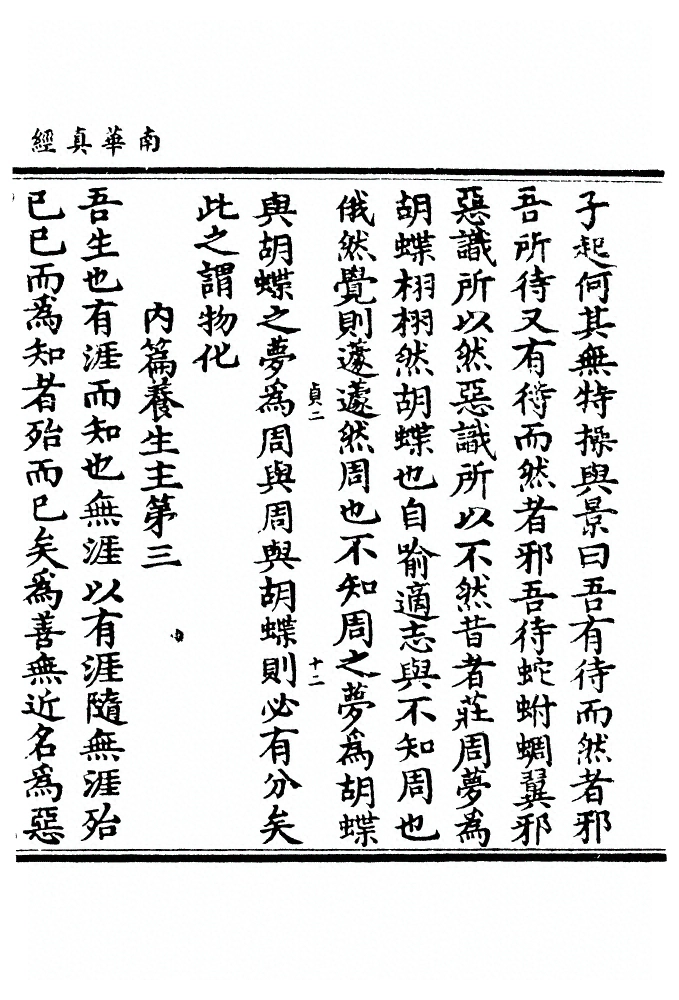 南華真經
子起何其無特操與景曰吾有待而然者邪
吾所待又有待而然者邪吾待蛇蚹蜩翼邪
惡識所以然惡識所以不然昔者莊周夢為
胡蝶栩栩然胡蝶也自喻適志與不知周也
俄然覺則蘧蘧然周也不知周之夢為胡蝶
貞二
十二
與胡蝶之夢為周與周與胡蝶則必有分矣
此之謂物化
內篇養生主第三
吾生也有涯而知也無涯以有涯隨無涯殆
已已而為知者殆而已矣為善無近名為惡